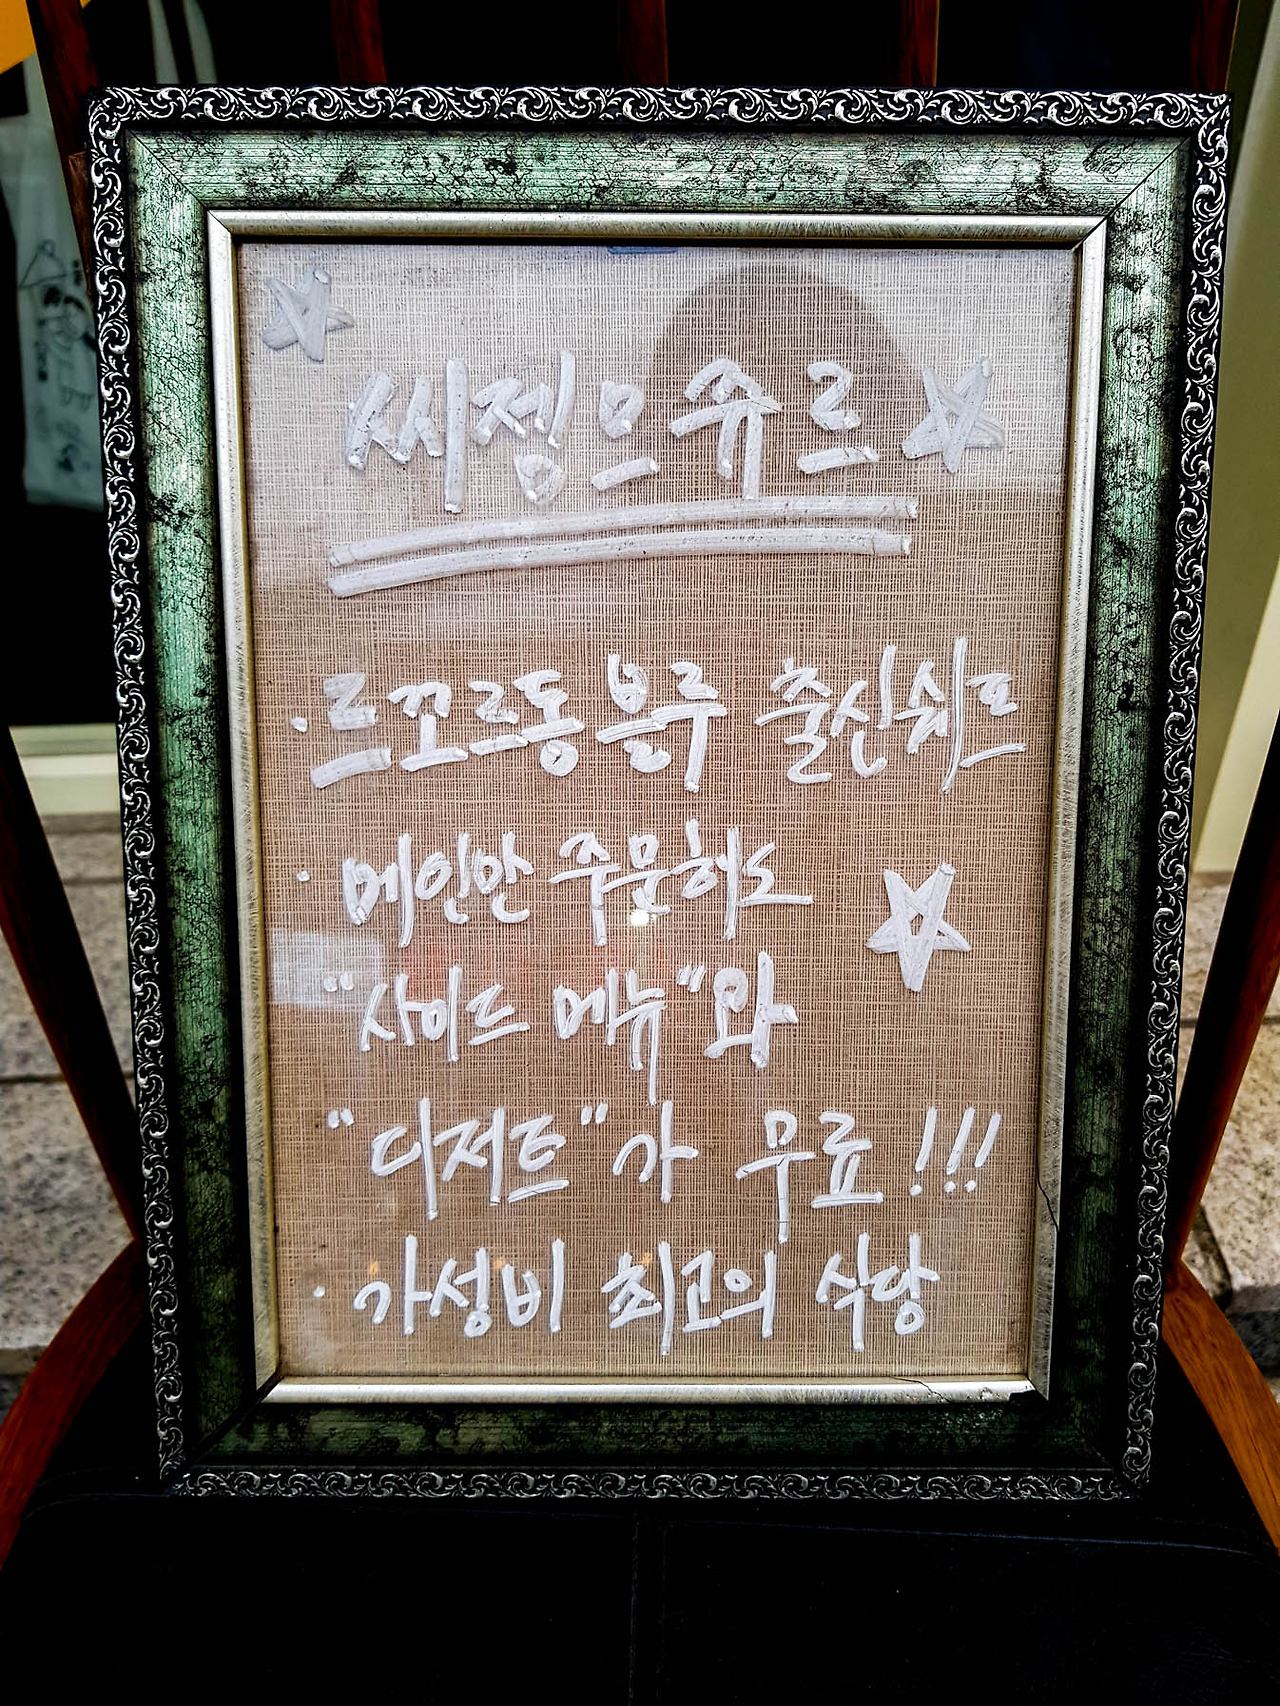 씨젬므쥬르
· 르꼬르동 블루 출신 쉐프
· 메인만 주문해도
"사이드 메뉴"와
"디저트"가 무료!!!
· 가성비 최고의 식당